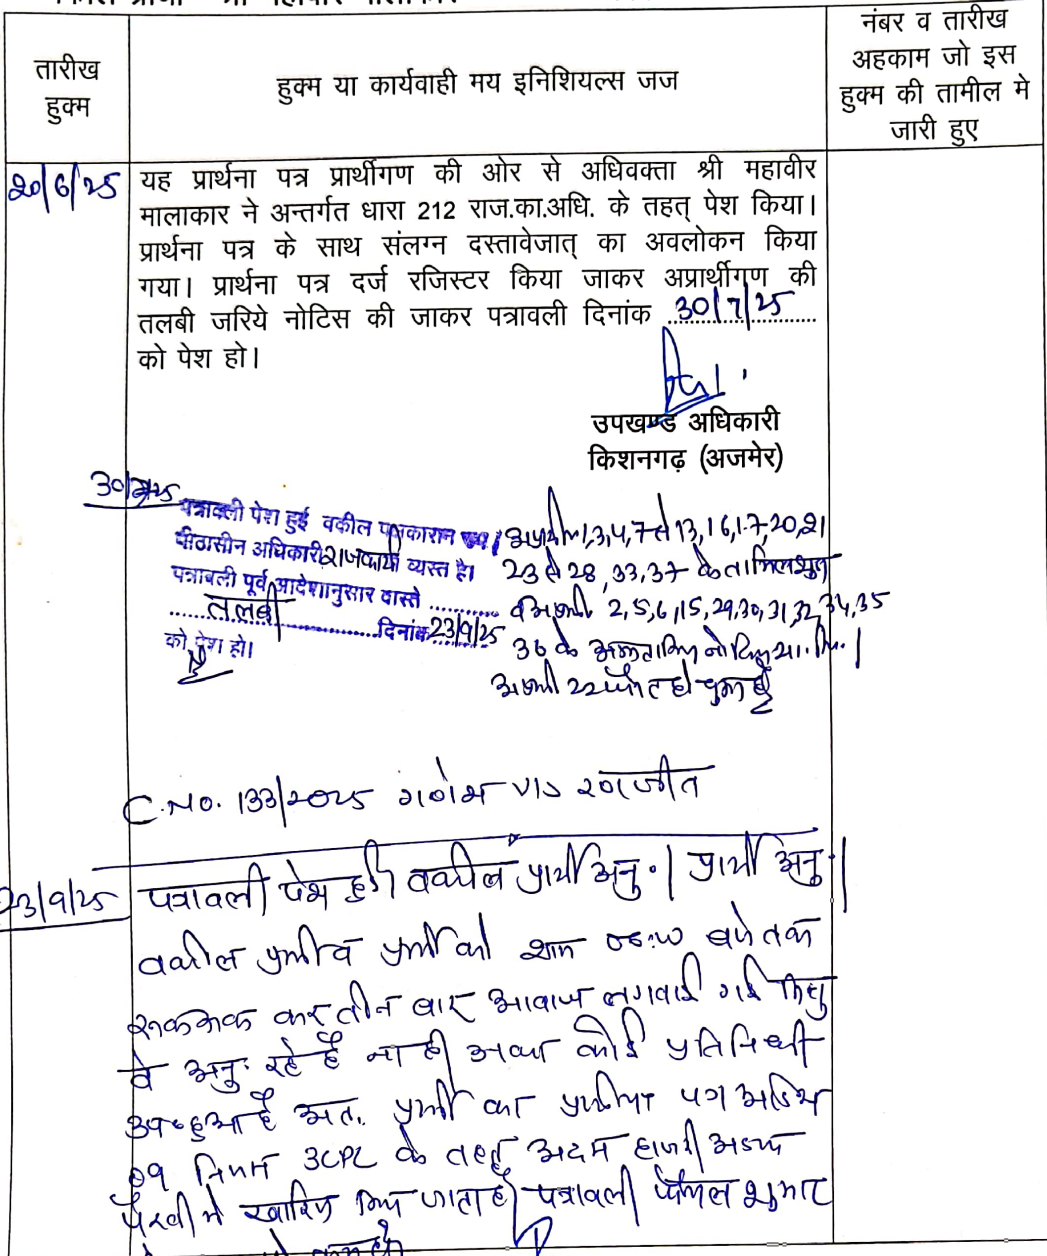 तारीख
हुक्म
हुक्म या कार्यवाही मय इनिशियल्स जज
नंबर व तारीख
अहकाम जो इस
हुक्म की तामील मे
जारी हुए
20/6/25
यह प्रार्थना पत्र प्रार्थीगण की ओर से अधिवक्ता श्री महावीर
मालाकार ने अन्तर्गत धारा 212 राज.का.अधि. के तहत् पेश किया।
प्रार्थना पत्र के साथ संलग्न दस्तावेजात् का अवलोकन किया
गया। प्रार्थना पत्र दर्ज रजिस्टर किया जाकर अप्रार्थीगण की
तलबी जरिये नोटिस की जाकर पत्रावली दिनांक 30/7/25
को पेश हो।
उपखण्ड अधिकारी
किशनगढ़ (अजमेर)
पत्रावली पेश हुई वकील
पीठासीन अधिकारी राजकार्य व्यस्त है।
पत्रावली पूर्व आदेशानुसार वास्ते
तलबी दिनांक 23/9/25
को पेश हो।
1,3,4,7 से 13,16,17,20,21
23 से 28, 33,37 के
2,5,6,15,29,30,31,32,34,35
36 के
22 फौत हो चुका है
C.No. 133/2025 गणेश v/s रणजीत
23/9/25
पत्रावली पेश हुई। वकील प्रार्थी अनु.। प्रार्थी अनु.।
वकील प्रार्थी व प्रार्थी को शाम बजे तक
रूक रूक कर तीन बार आवाज लगवाई गई किन्तु
वे अनु. रहे है ना ही अन्य कोई प्रतिनिधी
हुआ है अत. प्रार्थी का पत्र
09 नियम 3CPC के तहत् अदम हाजरी अदम
पैरवी में खारिज किया जाता है। पत्रावली फैसल शुमार